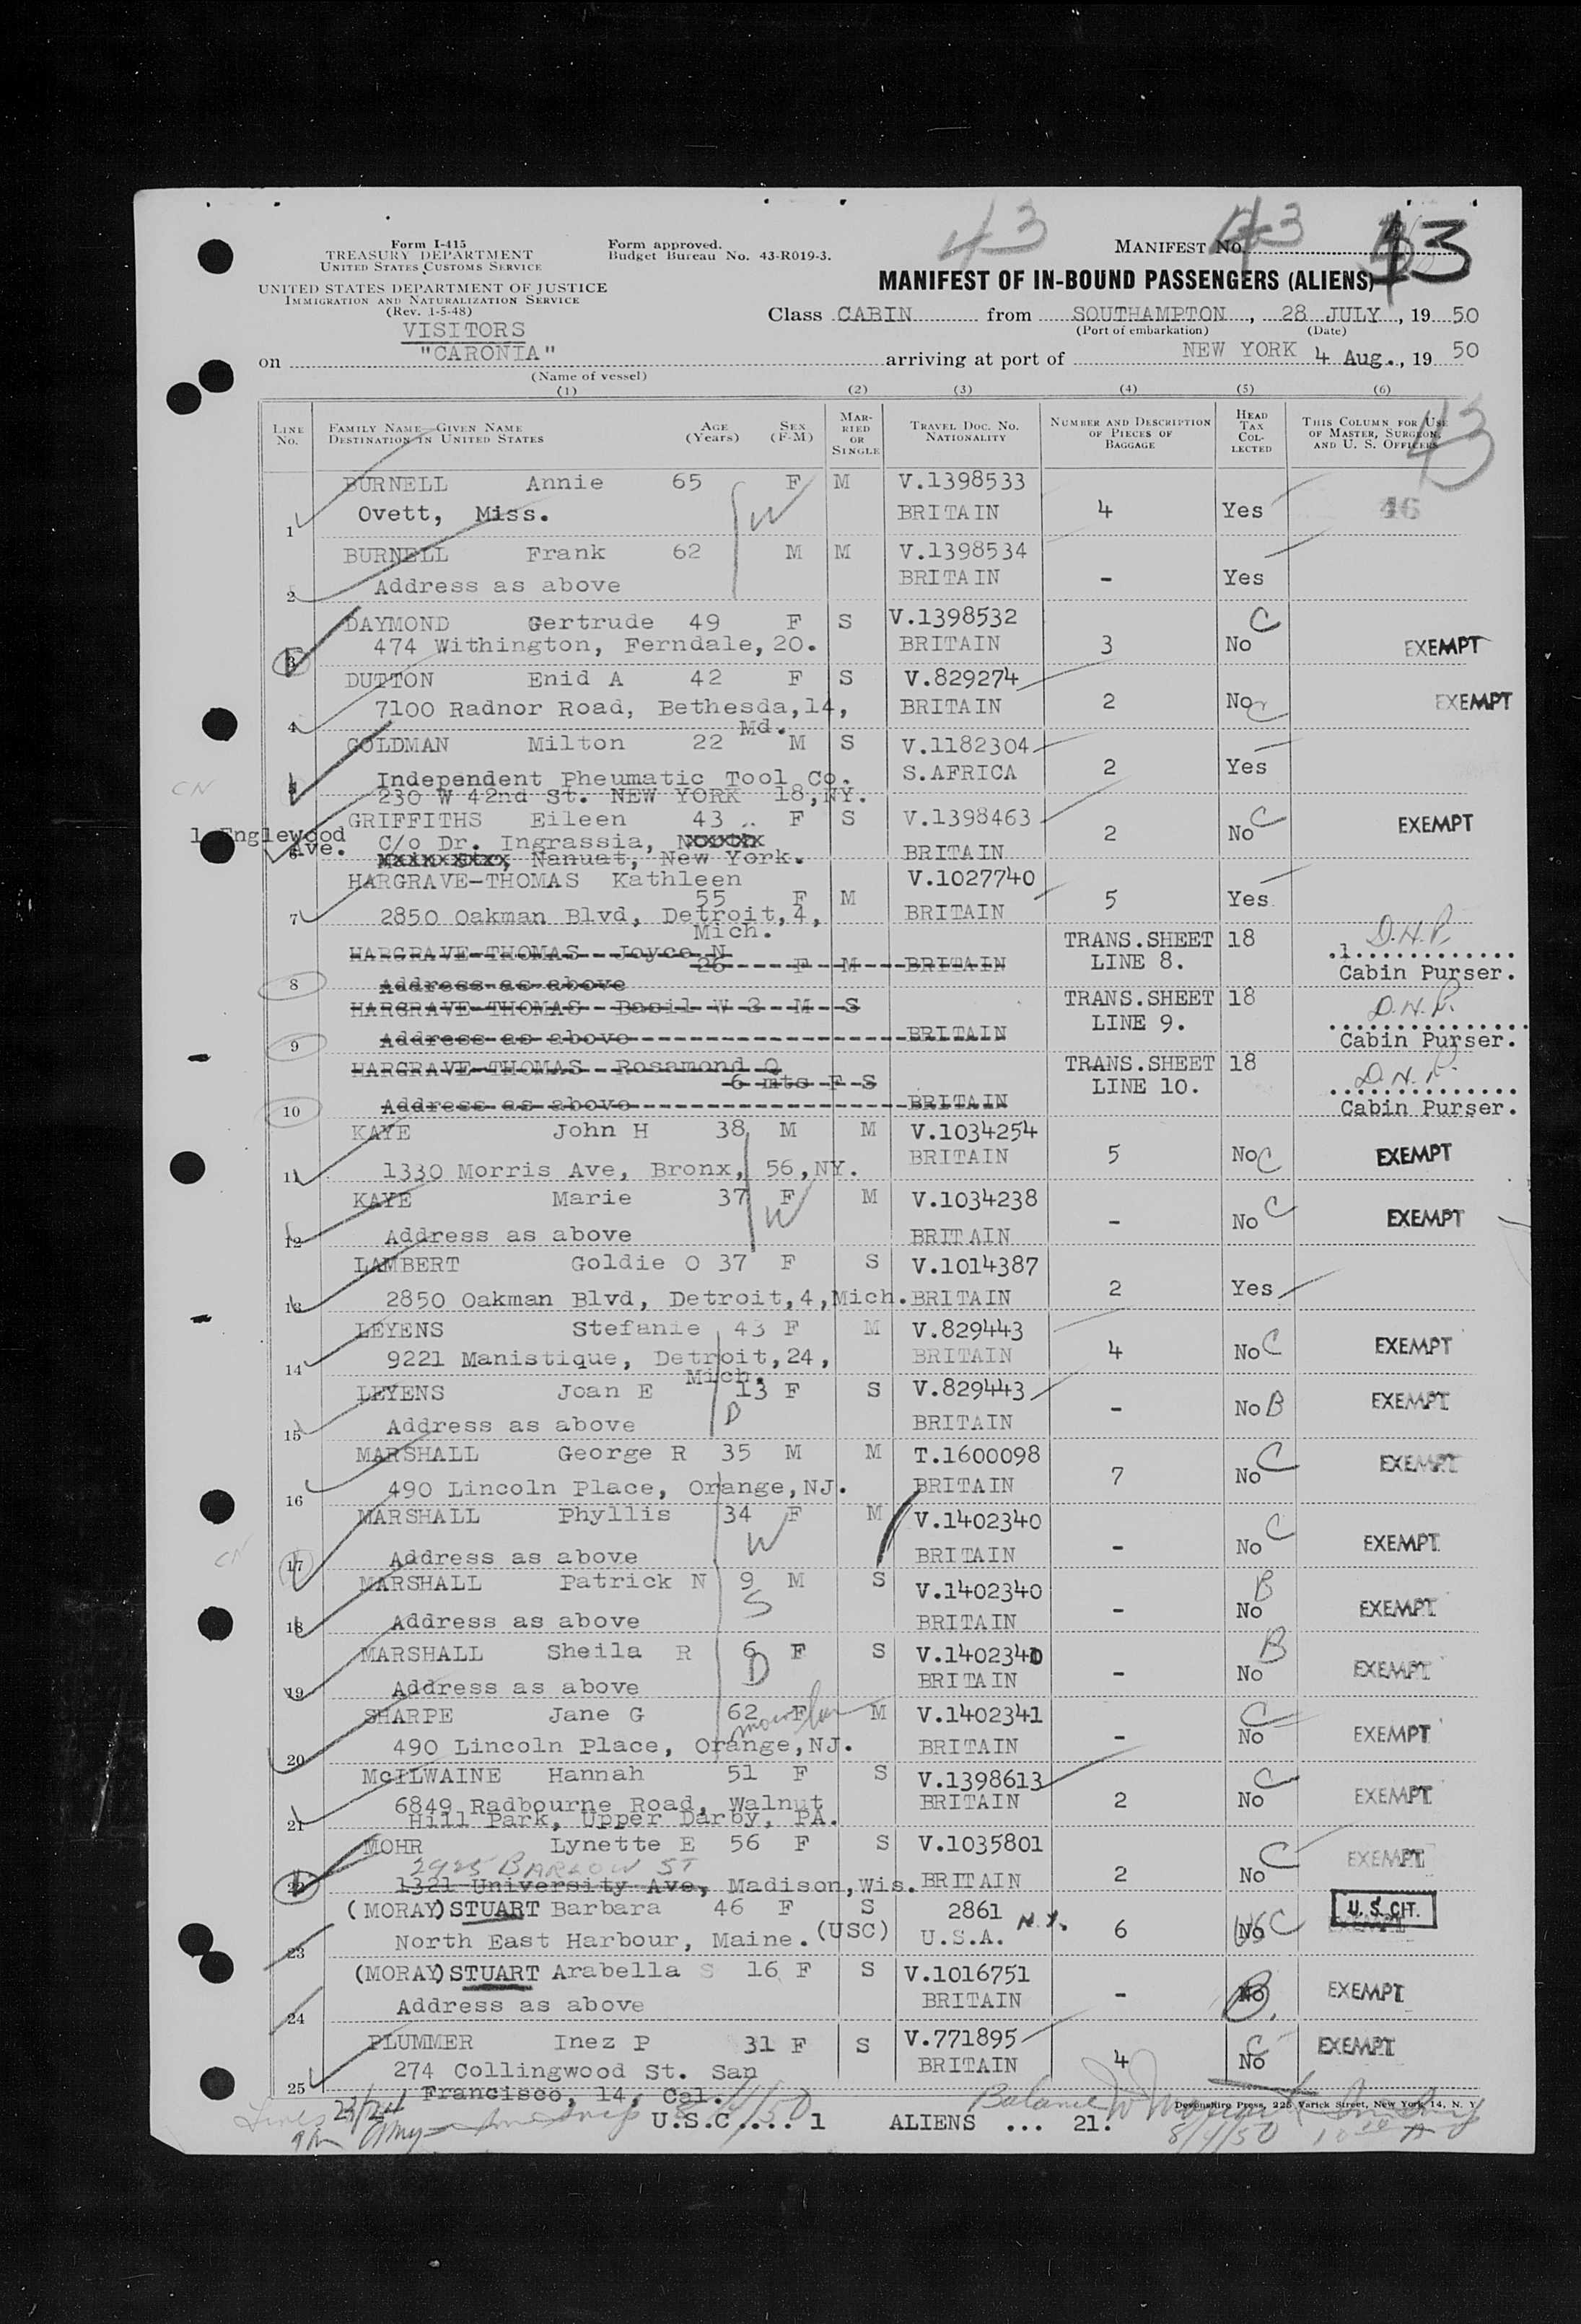 43 43 13
Form I-415
TREASURY DEPARTMENT
UNITED STATES CUSTOMS SERVICE
Form approved.
Budget Bureau No. 43-R019-3.
MANIFEST No.
UNITED STATES DEPARTMENT OF JUSTICE
IMMIGRATION AND NATURALIZATION SERVICE
(Rev. 1-5-48)
MANIFEST OF IN-BOUND PASSENGERS (ALIENS)
VISITORS
Class CABIN from SOUTHAMPTON, 28 JULY, 1950
(Port of embarkation) (Date)
on "CARONIA" arriving at port of NEW YORK 4 Aug., 1950
(Name of vessel)
(1) (2) (3) (4) (5) (6)
LINE No. FAMILY NAME—GIVEN NAME DESTINATION IN UNITED STATES AGE (Years) SEX (F-M) MARRIED OR SINGLE TRAVEL DOC. No. NATIONALITY NUMBER AND DESCRIPTION OF PIECES OF BAGGAGE HEAD TAX COLLECTED THIS COLUMN FOR USE OF MASTER, SURGEON, AND U. S. OFFICERS
43
BURNELL Annie 65 F M V.1398533
1 Ovett, Miss. W BRITAIN 4 Yes 46
BURNELL Frank 62 M M V.1398534
2 Address as above BRITAIN - Yes
DAYMOND Gertrude 49 F S V.1398532 C
3 474 Withington, Ferndale, 20. BRITAIN 3 No EXEMPT
DUTTON Enid A 42 F S V.829274
4 7100 Radnor Road, Bethesda, 14, Md. BRITAIN 2 No C EXEMPT
GOLDMAN Milton 22 M S V.1182304
5 Independent Pheumatic Tool Co. S.AFRICA 2 Yes
CN
230 W 42nd St. NEW YORK 18, NY.
GRIFFITHS Eileen 43 F S V.1398463
1 Englewood Ave.
6 C/o Dr. Ingrassia, Nanuat, New York. BRITAIN 2 No C EXEMPT
HARGRAVE-THOMAS Kathleen 55 F M V.1027740
7 2850 Oakman Blvd, Detroit, 4, Mich. BRITAIN 5 Yes
HARGRAVE-THOMAS Joyce N 26 F M BRITAIN TRANS.SHEET 18 D.H.P.
8 Address as above LINE 8. Cabin Purser.
HARGRAVE-THOMAS Basil W 3 M S TRANS.SHEET 18 D.H.P.
9 Address as above BRITAIN LINE 9. Cabin Purser.
HARGRAVE-THOMAS Rosamond Q 6 mts F S TRANS.SHEET 18 D.H.P.
10 Address as above BRITAIN LINE 10. Cabin Purser.
KAYE John H 38 M M V.1034254
11 1330 Morris Ave, Bronx, 56, NY. BRITAIN 5 No C EXEMPT
KAYE Marie 37 F M V.1034238
12 Address as above W BRITAIN - No C EXEMPT
LAMBERT Goldie O 37 F S V.1014387
13 2850 Oakman Blvd, Detroit, 4, Mich. BRITAIN 2 Yes
LEYENS Stefanie 43 F M V.829443
14 9221 Manistique, Detroit, 24, Mich. BRITAIN 4 No C EXEMPT
LEYENS Joan E 13 F S V.829443
15 Address as above D BRITAIN - No B EXEMPT
MARSHALL George R 35 M M T.1600098
16 490 Lincoln Place, Orange, NJ. BRITAIN 7 No C EXEMPT
MARSHALL Phyllis 34 F M V.1402340
CN
17 Address as above W BRITAIN - No C EXEMPT
MARSHALL Patrick N 9 M S V.1402340
18 Address as above S BRITAIN - No B EXEMPT
MARSHALL Sheila R 6 F S V.1402340
19 Address as above D BRITAIN - No B EXEMPT
SHARPE Jane G 62 F M V.1402341
20 490 Lincoln Place, Orange, NJ. BRITAIN - No C EXEMPT
McILWAINE Hannah 51 F S V.1398613
21 6849 Radbourne Road, Walnut BRITAIN 2 No C EXEMPT
Hill Park, Upper Darby, PA.
MOHR Lynette E 56 F S V.1035801
2925 BARLOW ST
22 1321 University Ave, Madison, Wis. BRITAIN 2 No C EXEMPT
(MORAY) STUART Barbara 46 F S 2861 N.Y. U. S. CIT.
23 North East Harbour, Maine. (USC) U.S.A. 6 No USC EXEMPT
(MORAY) STUART Arabella S 16 F S V.1016751
24 Address as above BRITAIN - No B. EXEMPT
PLUMMER Inez P 31 F S V.771895 C
25 274 Collingwood St. San BRITAIN 4 No EXEMPT
Francisco, 14, Cal.
Devonshire Press, 225 Varick Street, New York 14, N. Y.
Lines 23/24
Balance
U.S.C.... 1 ALIENS ... 21.
8/4/50